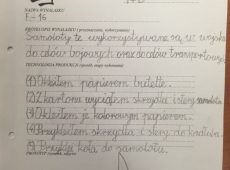 NAZWA WYNALAZKU
F-16
PROTOTYP WYNALAZKU (przeznaczenie, wykorzystanie)
Samoloty te wykorzystywane są w wojsku
do celów bojowych oraz do celów transportowych
TECHNOLOGIA PRODUKCJI
(1) Okleiłem papierem butelkę.
(2) Z kartonu wyciąłem skrzydła i stery samolotu.
(3) Okleiłem je kolorowym papierem.
(4) Przykleiłem skrzydła i stery do kadłuba.
(5) Przykleił koła do samolotu.